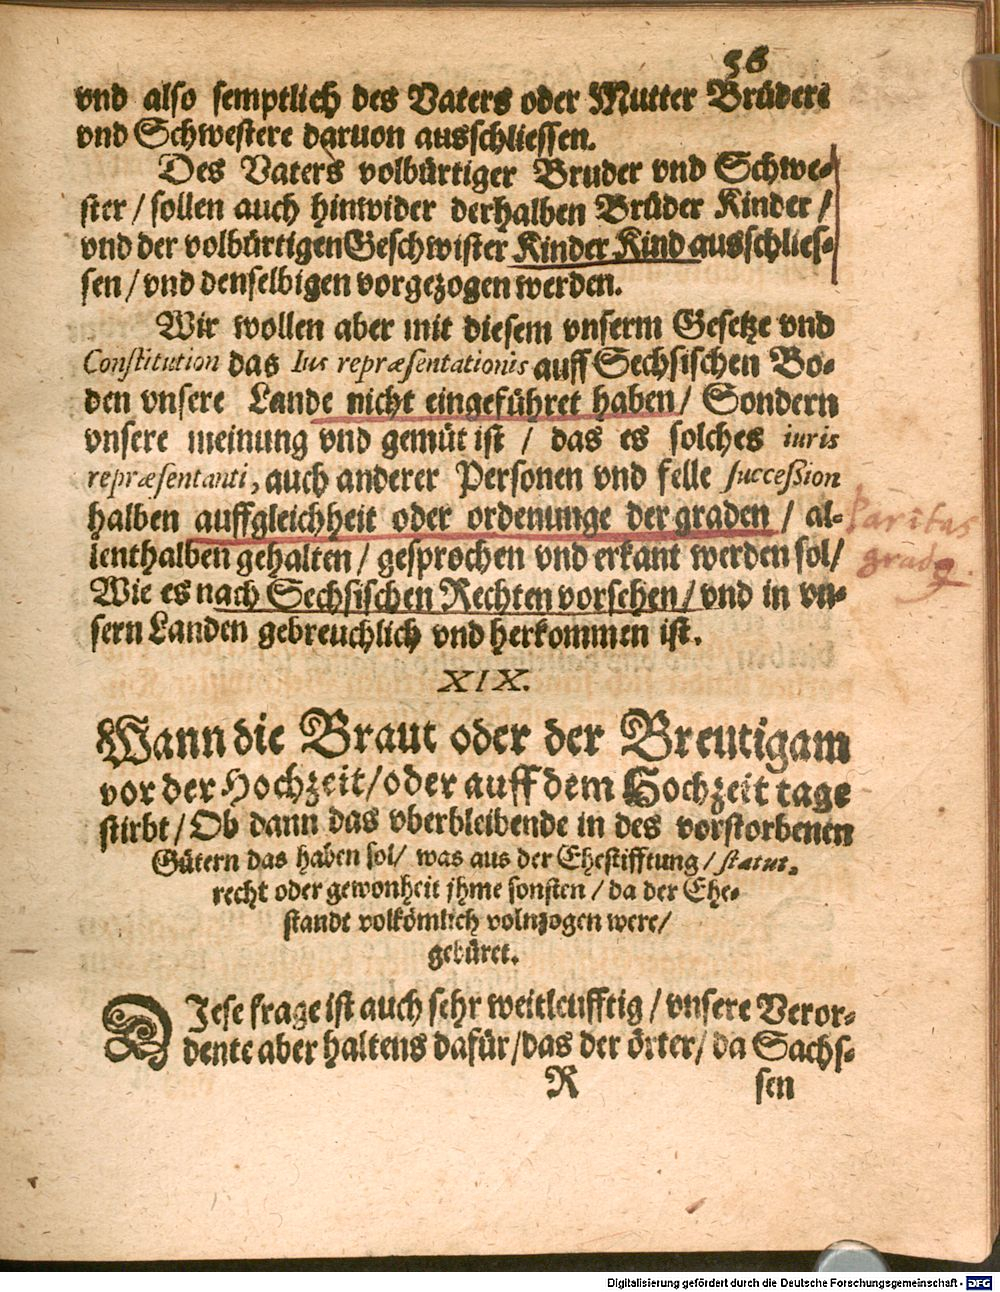 56
vnd also semptlich des Vaters oder Mutter Brüdere
vnd Schwestere daruon ausschliessen.
Des Vaters volbürtiger Bruder vnd Schwe-
ster / sollen auch hinwider derhalben Brüder Kinder /
vnd der volbürtigen Geschwister Kinder Kind ausschlies-
sen / vnd denselbigen vorgezogen werden.
Wir wollen aber mit diesem vnserm Gesetze vnd
Constitution das Ius repræsentationis auff Sechsischen Bo-
den vnsere Lande nicht eingeführet haben / Sondern
vnsere meinung vnd gemüt ist / das es solches iuris
repræsentanti, auch anderer Personen vnd felle succeßion
halben auffgleichheit oder ordenunge der graden / al-
lenthalben gehalten / gesprochen vnd erkant werden sol /
Wie es nach Sechsischen Rechten vorsehen / vnd in vn-
sern Landen gebreuchlich vnd herkommen ist.
Paritas
XIX.
Wann die Braut oder der Breutigam
vor der Hochzeit / oder auff dem Hochzeit tage
stirbt / Ob dann das vberbleibende in des vorstorbenen
Gütern das haben sol / was aus der Ehestifftung / statut.
recht oder gewonheit jhme sonsten / da der Ehe-
standt volkömlich volnzogen were /
gebüret.
DIese frage ist auch sehr weitleufftig / vnsere Veror-
dente aber haltens dafür / das der örter / da Sachs-
R sen
Digitalisierung gefördert durch die Deutsche Forschungsgemeinschaft - DFG